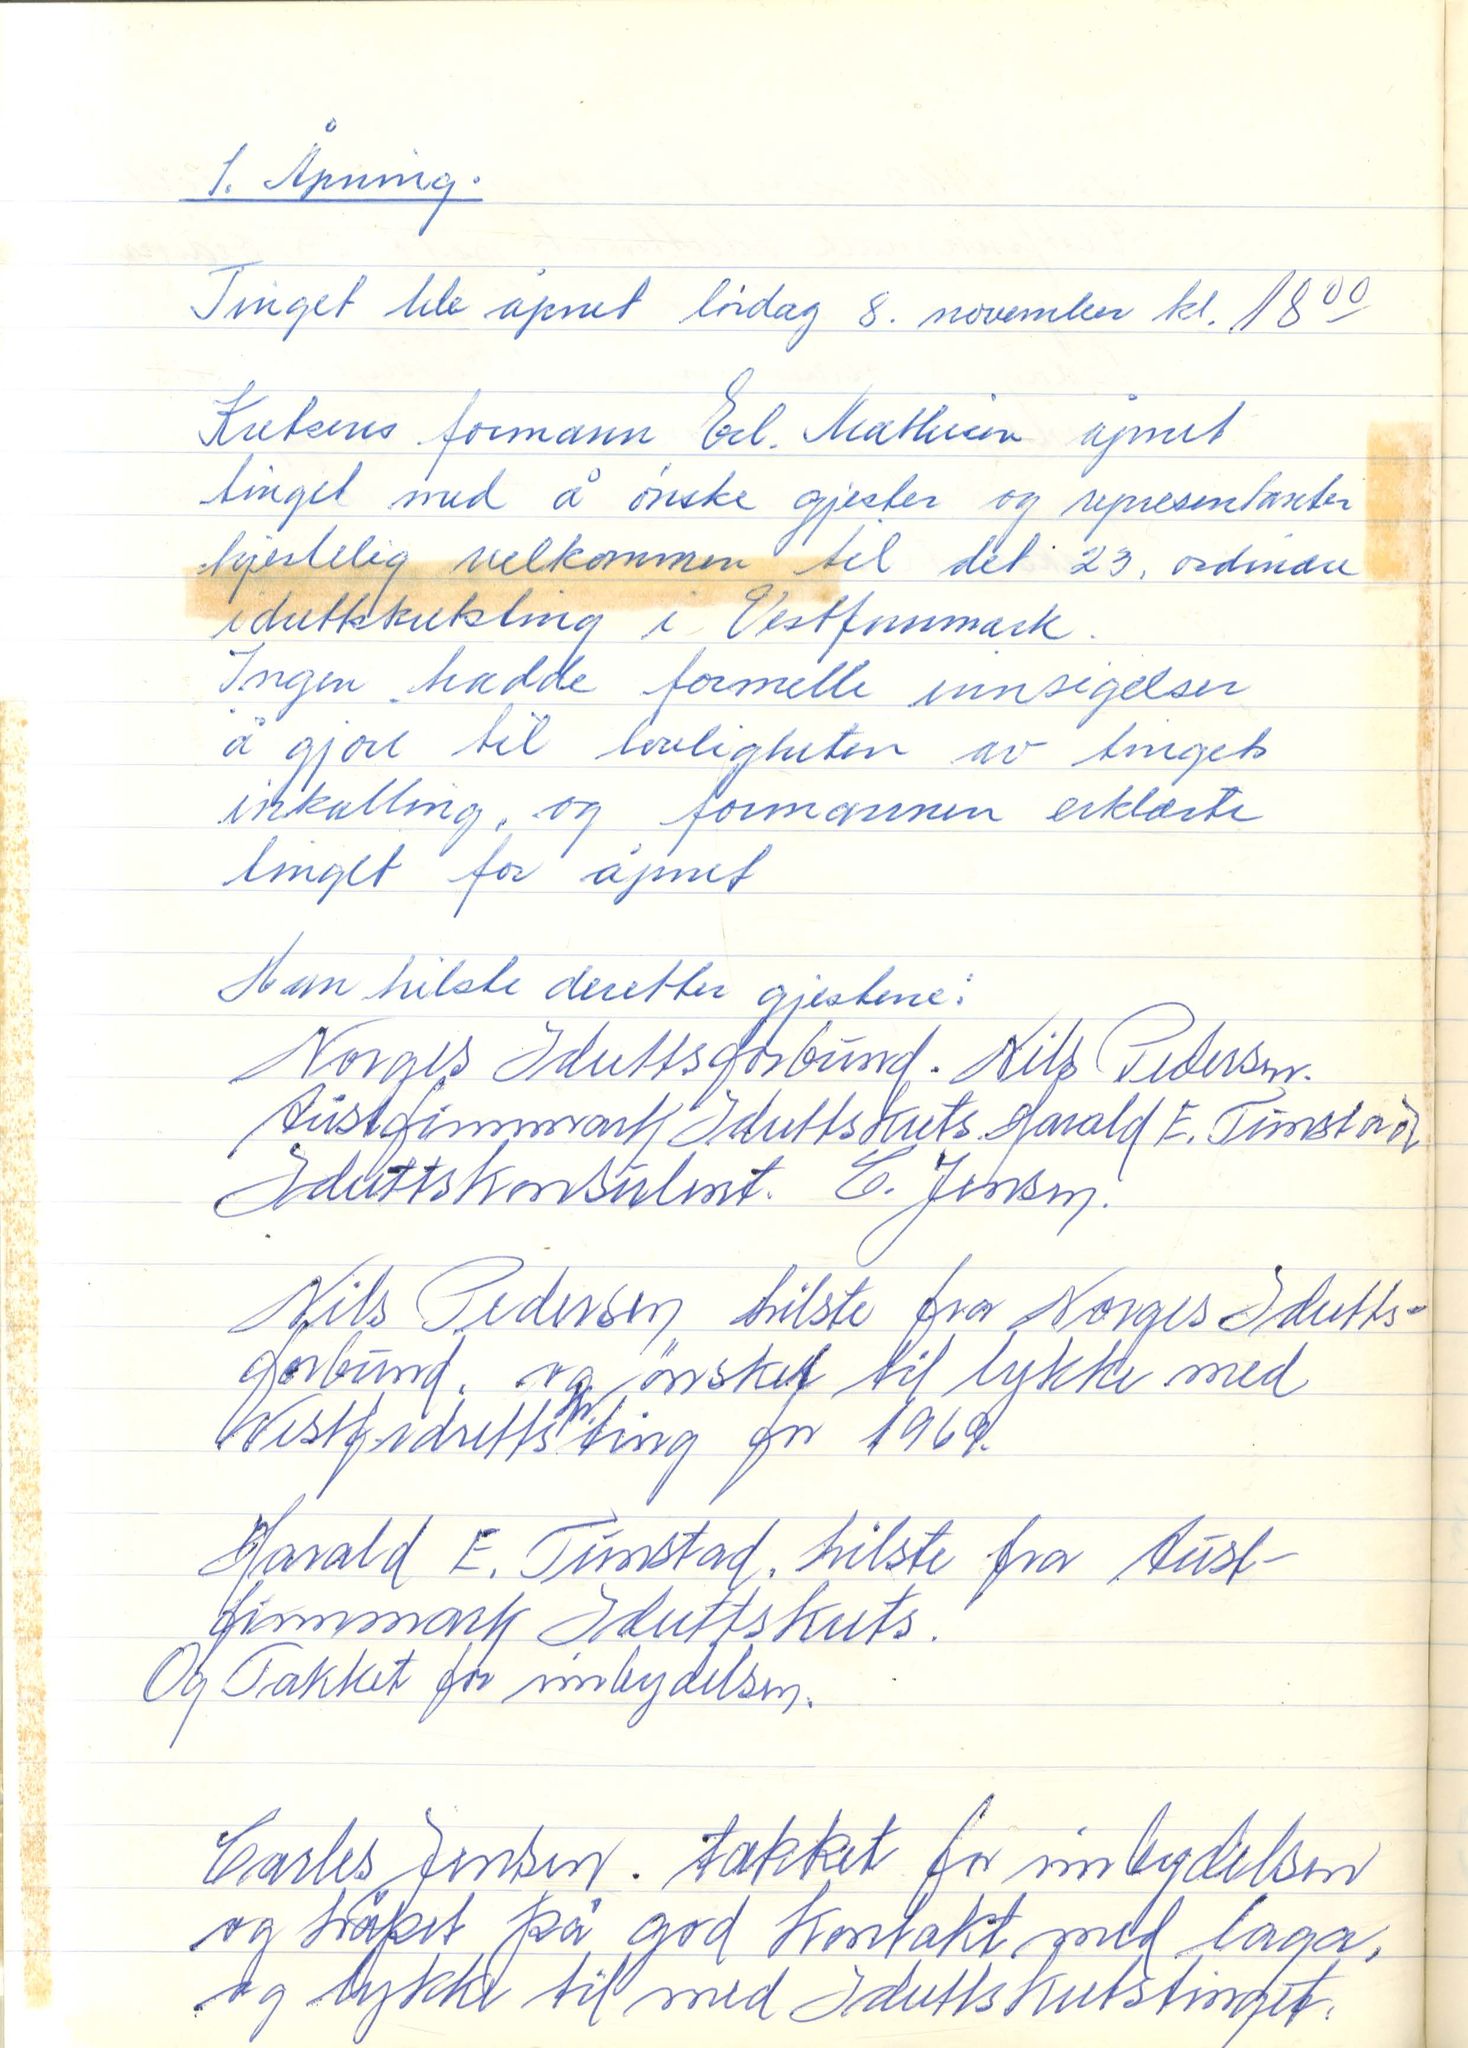 1. Åpning.
Tinget ble åpnet lördag 8. november kl. 18⁰⁰
Kretsens formann Erl. Mathisen åpnet
tinget med å önske gjester og representanter
hjertelig velkommen til det 23. ordinære
idrettskretsting i Vestfinnmark.
Ingen hadde formelle innsigelser
å gjöre til lovligheten av tingets
inkalling, og formannen erklærte
tinget for åpnet
Han hilste deretter gjestene:
Norges Idrettsforbund. Nils Pedersen.
Austfinnmark Idrettskrets. Harald E. Tunstad
Idrettskonsulent. C. Jensen.
Nils Pedersen hilste fra Norges Idretts-
forbund. og önsket til lykke med
Vestf. idretts kr. ting for 1969.
Harald E. Tunstad. hilste fra Aust-
finnmark Idrettskrets.
Og Takket for inbydelsen.
Carles Jensen. takket for inbydelsen
og håpet på god kontakt med laga.
og lykke til med Idrettskretstinget.